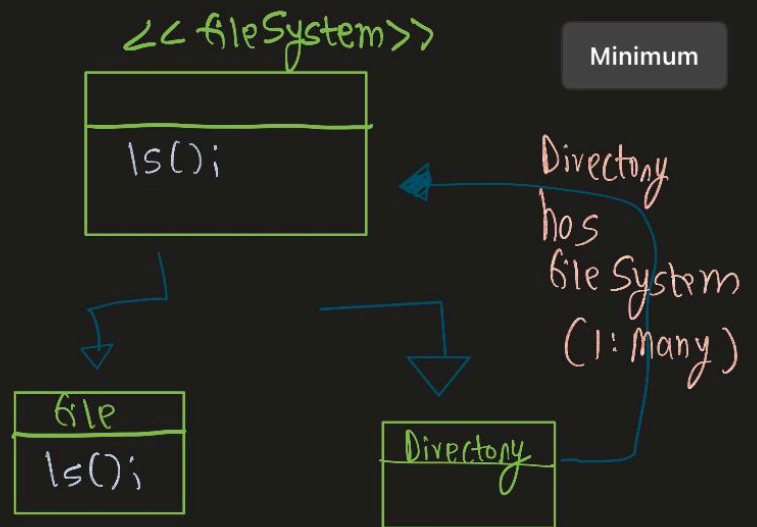 <<fileSystem>>
Minimum
ls();
Directory
has
fileSystem
(1:Many)
file
ls();
Directory